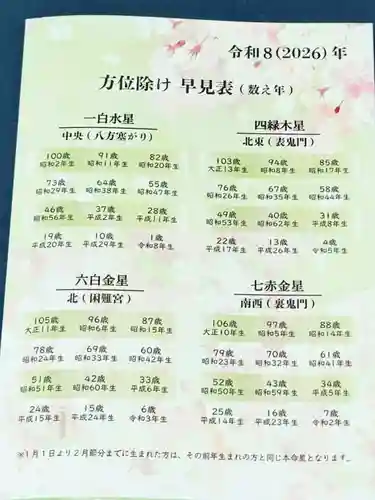 令和8(2026)年
方位除け 早見表(数え年)
一白水星
中央(八方塞がり)
100歳 91歳 82歳
昭和2年生 昭和11年生 昭和20年生
73歳 64歳 55歳
昭和29年生 昭和38年生 昭和47年生
46歳 37歳 28歳
昭和56年生 平成2年生 平成11年生
19歳 10歳 1歳
平成20年生 平成29年生 令和8年生
四緑木星
北東(表鬼門)
103歳 94歳 85歳
大正13年生 昭和8年生 昭和17年生
76歳 67歳 58歳
昭和26年生 昭和35年生 昭和44年生
49歳 40歳 31歳
昭和53年生 昭和62年生 平成8年生
22歳 13歳 4歳
平成17年生 平成26年生 令和5年生
六白金星
北(困難宮)
105歳 96歳 87歳
大正11年生 昭和6年生 昭和15年生
78歳 69歳 60歳
昭和24年生 昭和33年生 昭和42年生
51歳 42歳 33歳
昭和51年生 昭和60年生 平成6年生
24歳 15歳 6歳
平成15年生 平成24年生 令和3年生
七赤金星
南西(裏鬼門)
106歳 97歳 88歳
大正10年生 昭和5年生 昭和14年生
79歳 70歳 61歳
昭和23年生 昭和32年生 昭和41年生
52歳 43歳 34歳
昭和50年生 昭和59年生 平成5年生
25歳 16歳 7歳
平成14年生 平成23年生 令和2年生
※1月1日より2月節分までに生まれた方は、その前年生まれの方と同じ本命星となります。